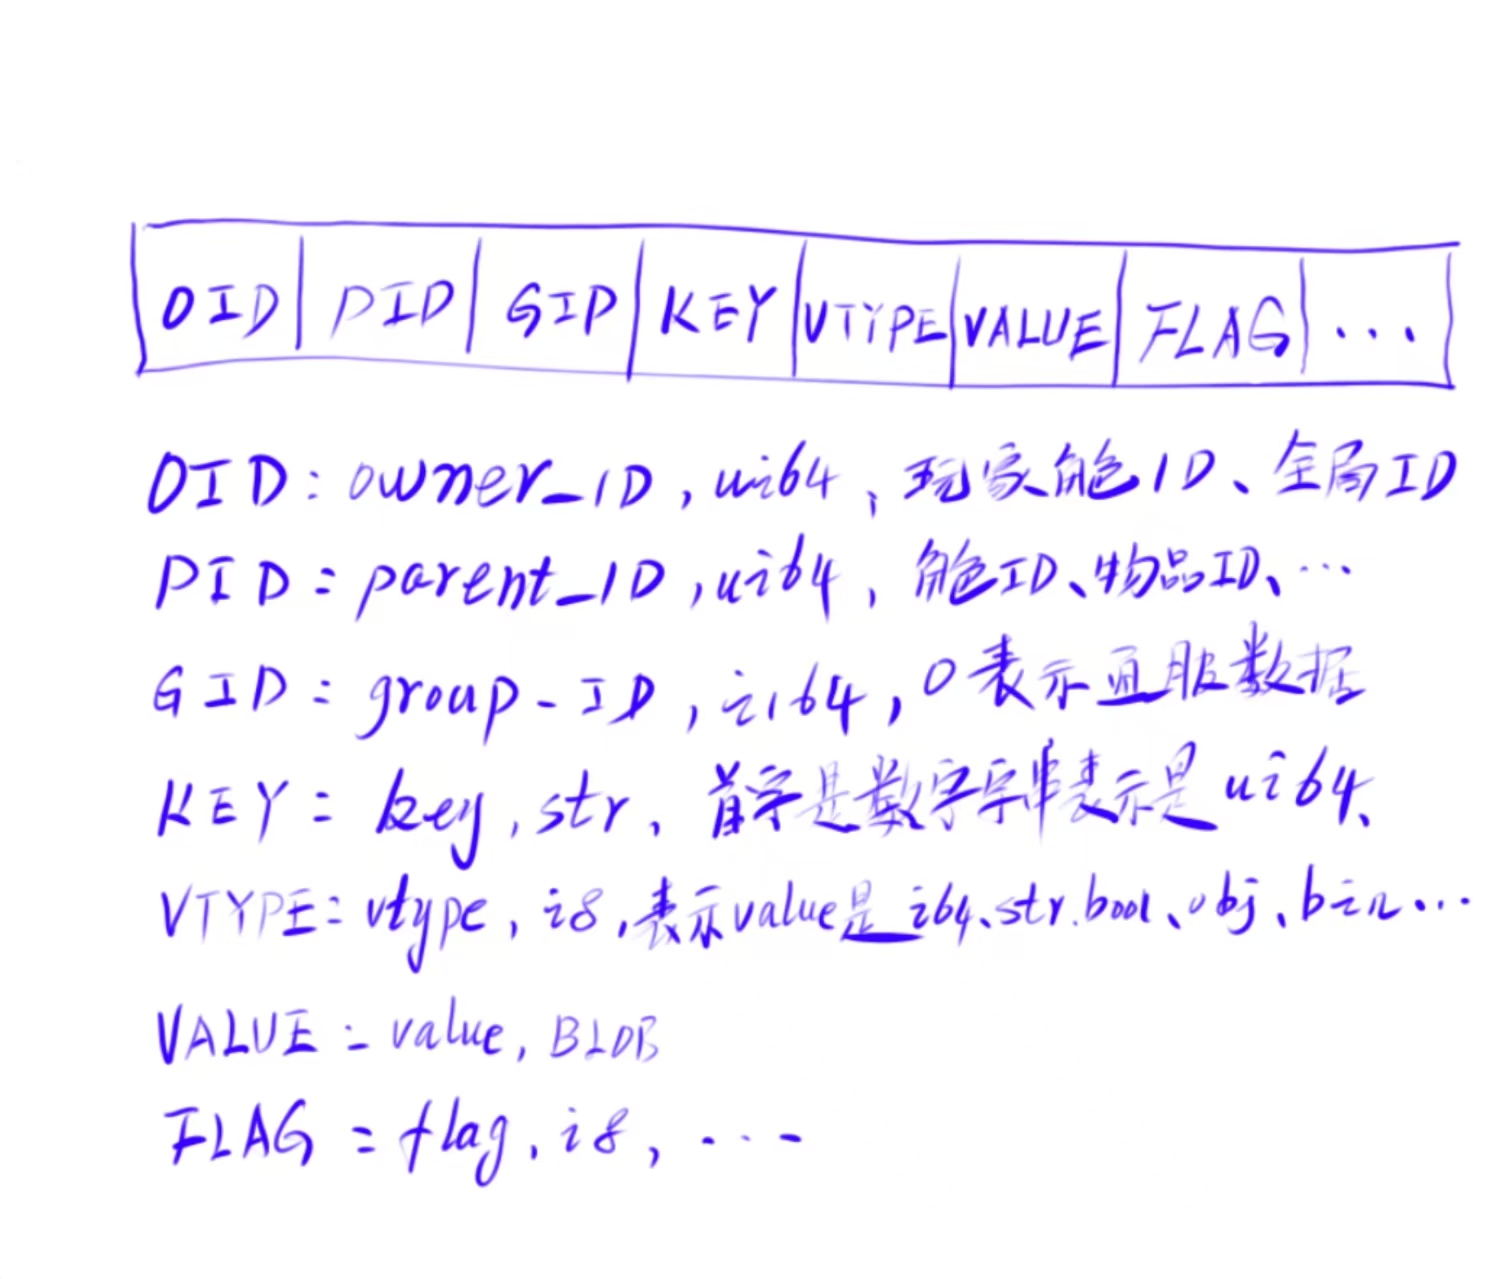 OID PID GID KEY VTYPE VALUE FLAG ...
OID: owner_ID, ui64, 玩家角色ID、全局ID
PID: parent_ID, ui64, 角色ID、物品ID、...
GID: group-ID, i64, 0表示 数据
KEY: key, str, 首字是数字字串表示是ui64、
VTYPE: vtype, i8, 表示value是i64、str.bool、obj、bin...
VALUE: value, BLOB
FLAG: flag, i8, ...